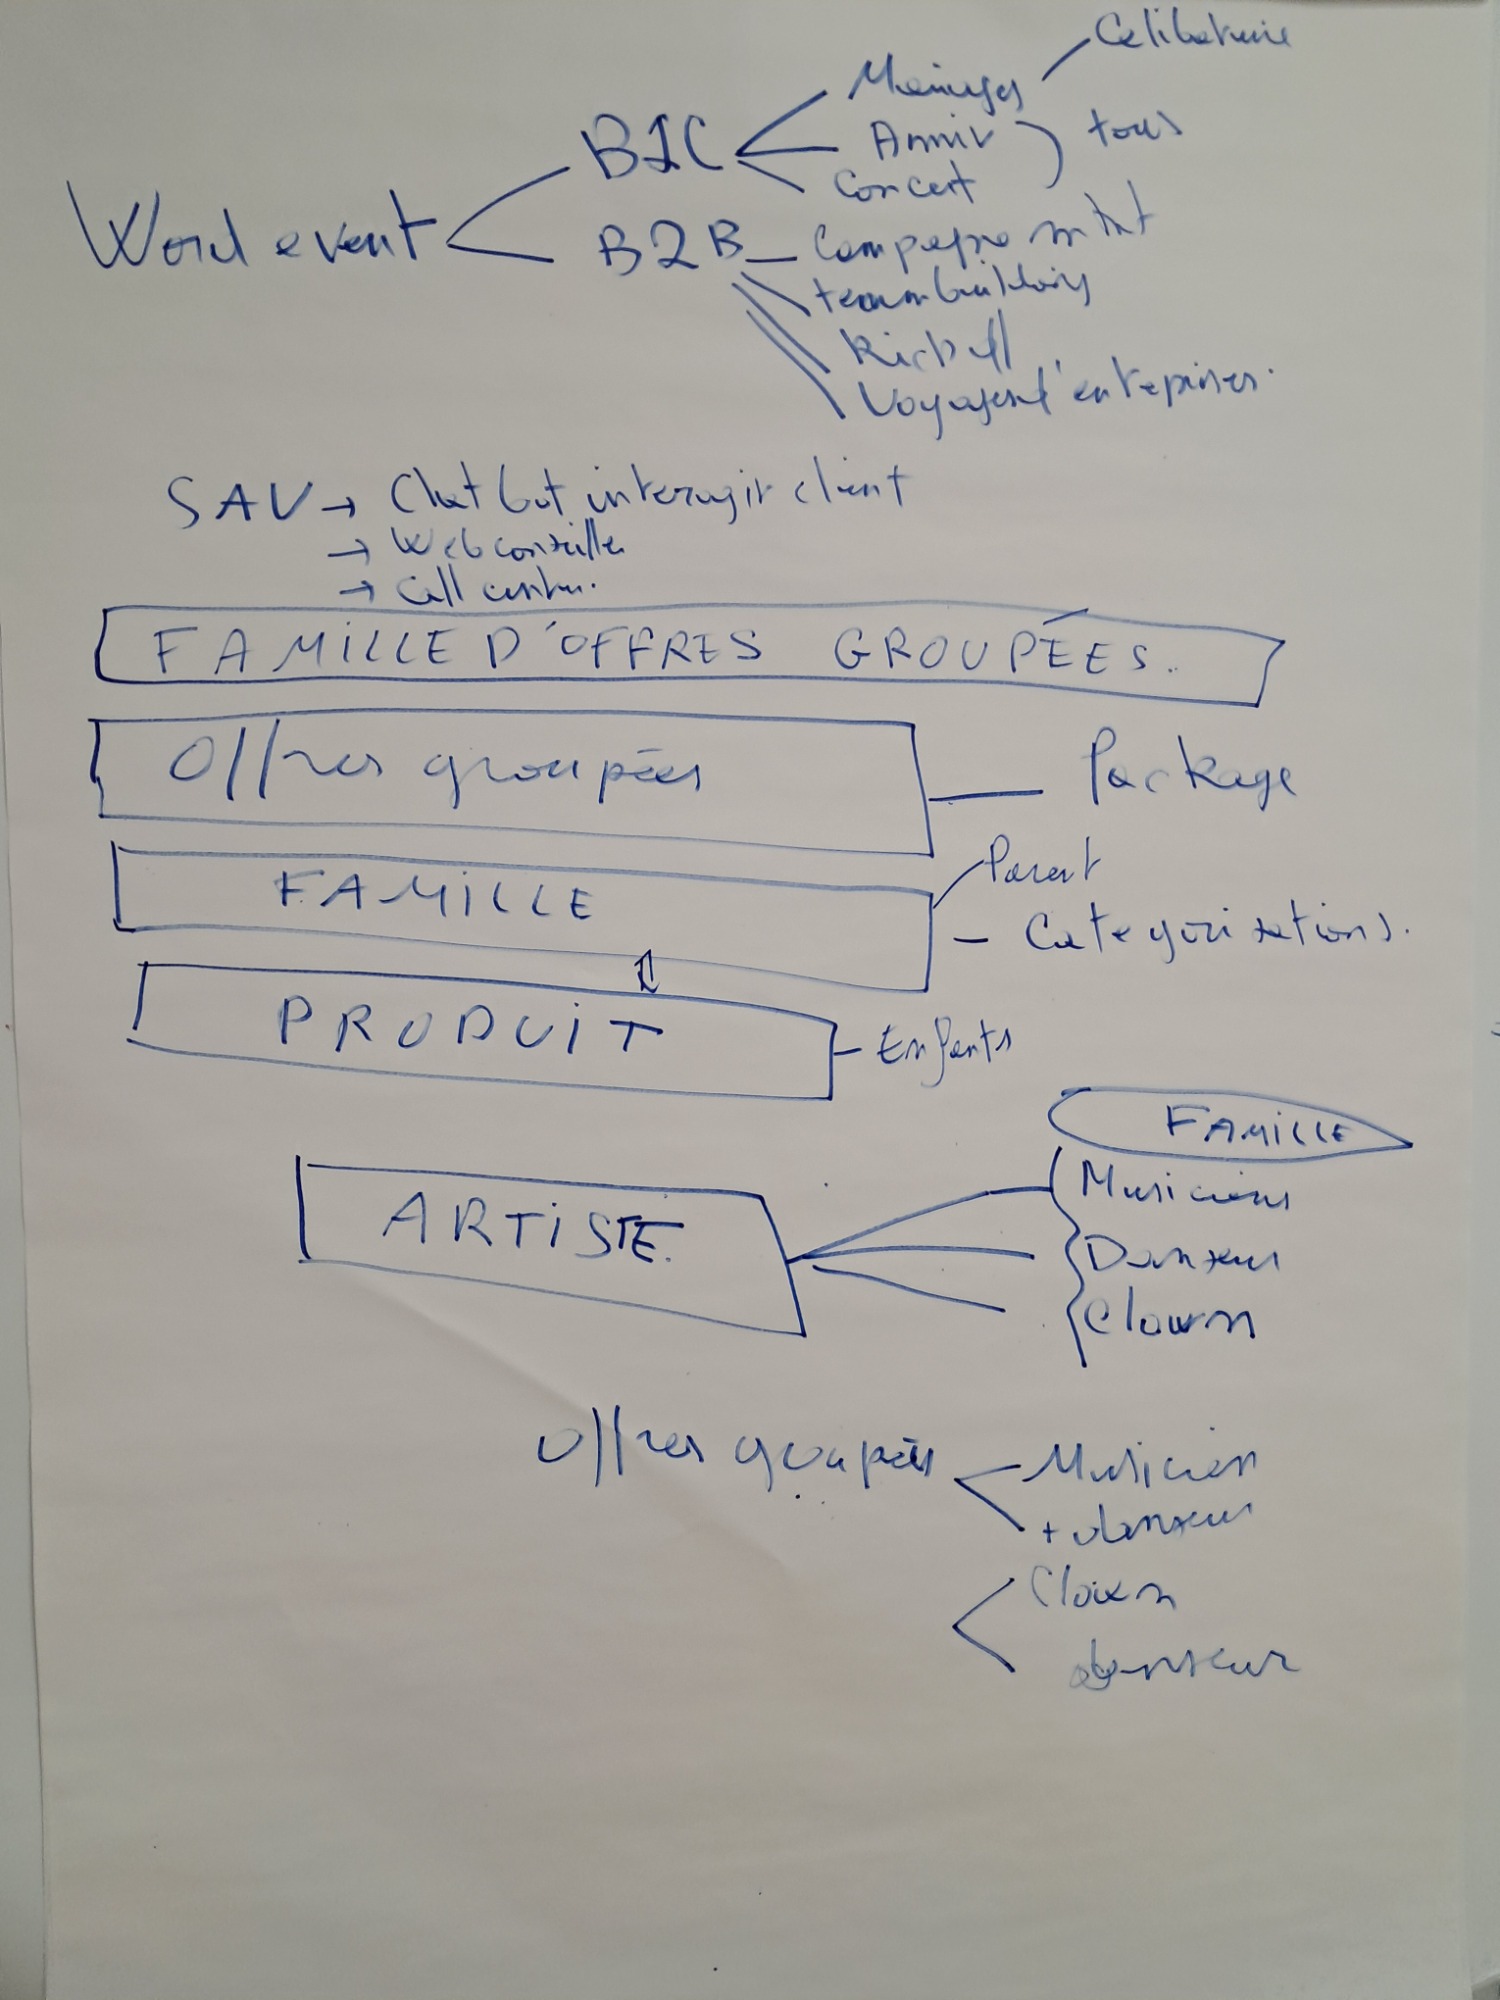 Celibataire
Mariages
B2C
Anniv
tous
Concert
Word event
B2B
Campagne
teambuilding
Kick off
Voyages d'entreprises.
SAV → Chatbot interagir client
→ Web conseiller
→ Call center.
FAMILLE D'OFFRES GROUPÉES.
Offres groupées
Package
Parent
FAMILLE
- Categorisations.
PRODUIT
Enfants
FAMILLE
ARTISTE.
Musiciens
Danseur
Clown
Offres groupées
Musicien
+ danseur
Clown
danseur